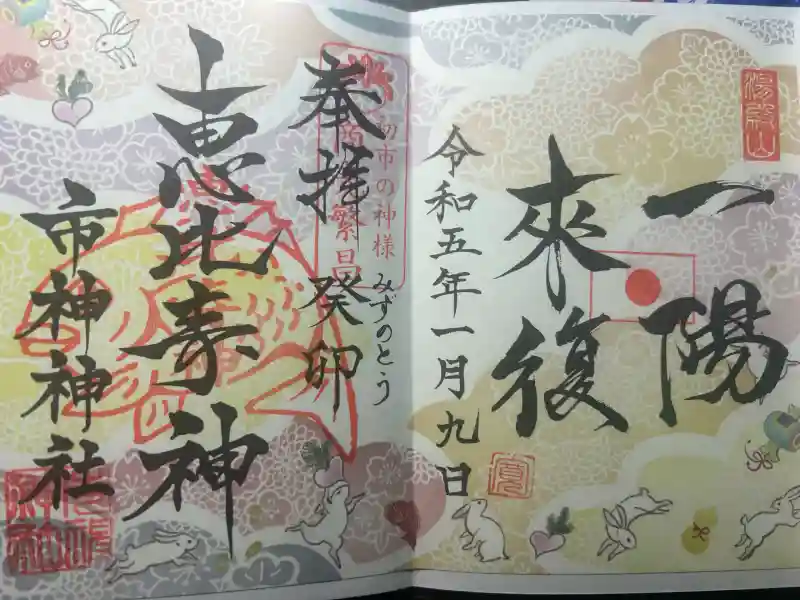 湯殿山
一陽
來復
令和五年一月九日
奉拝 癸卯
みずのとう
初市の神様
繁昌
恵比寿神
市神神社